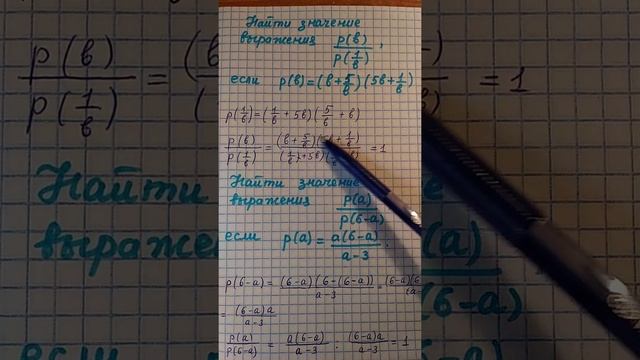 Найти значение
выражения p(b)/p(1/b),
если p(b)=(b+5/b)(5b+1/b)
p(1/b)=(1/b+5b)(5/b+b)
p(b)/p(1/b)=(b+5/b)(5b+1/b)/(1/b+5b)(5/b+b)=1
Найти значение
выражения p(a)/p(6-a)
если p(a)=a(6-a)/a-3.
p(6-a)=(6-a)(6-(6-a))/a-3=
=(6-a)a/a-3
p(a)/p(6-a)=a(6-a)/a-3:(6-a)a/a-3=1